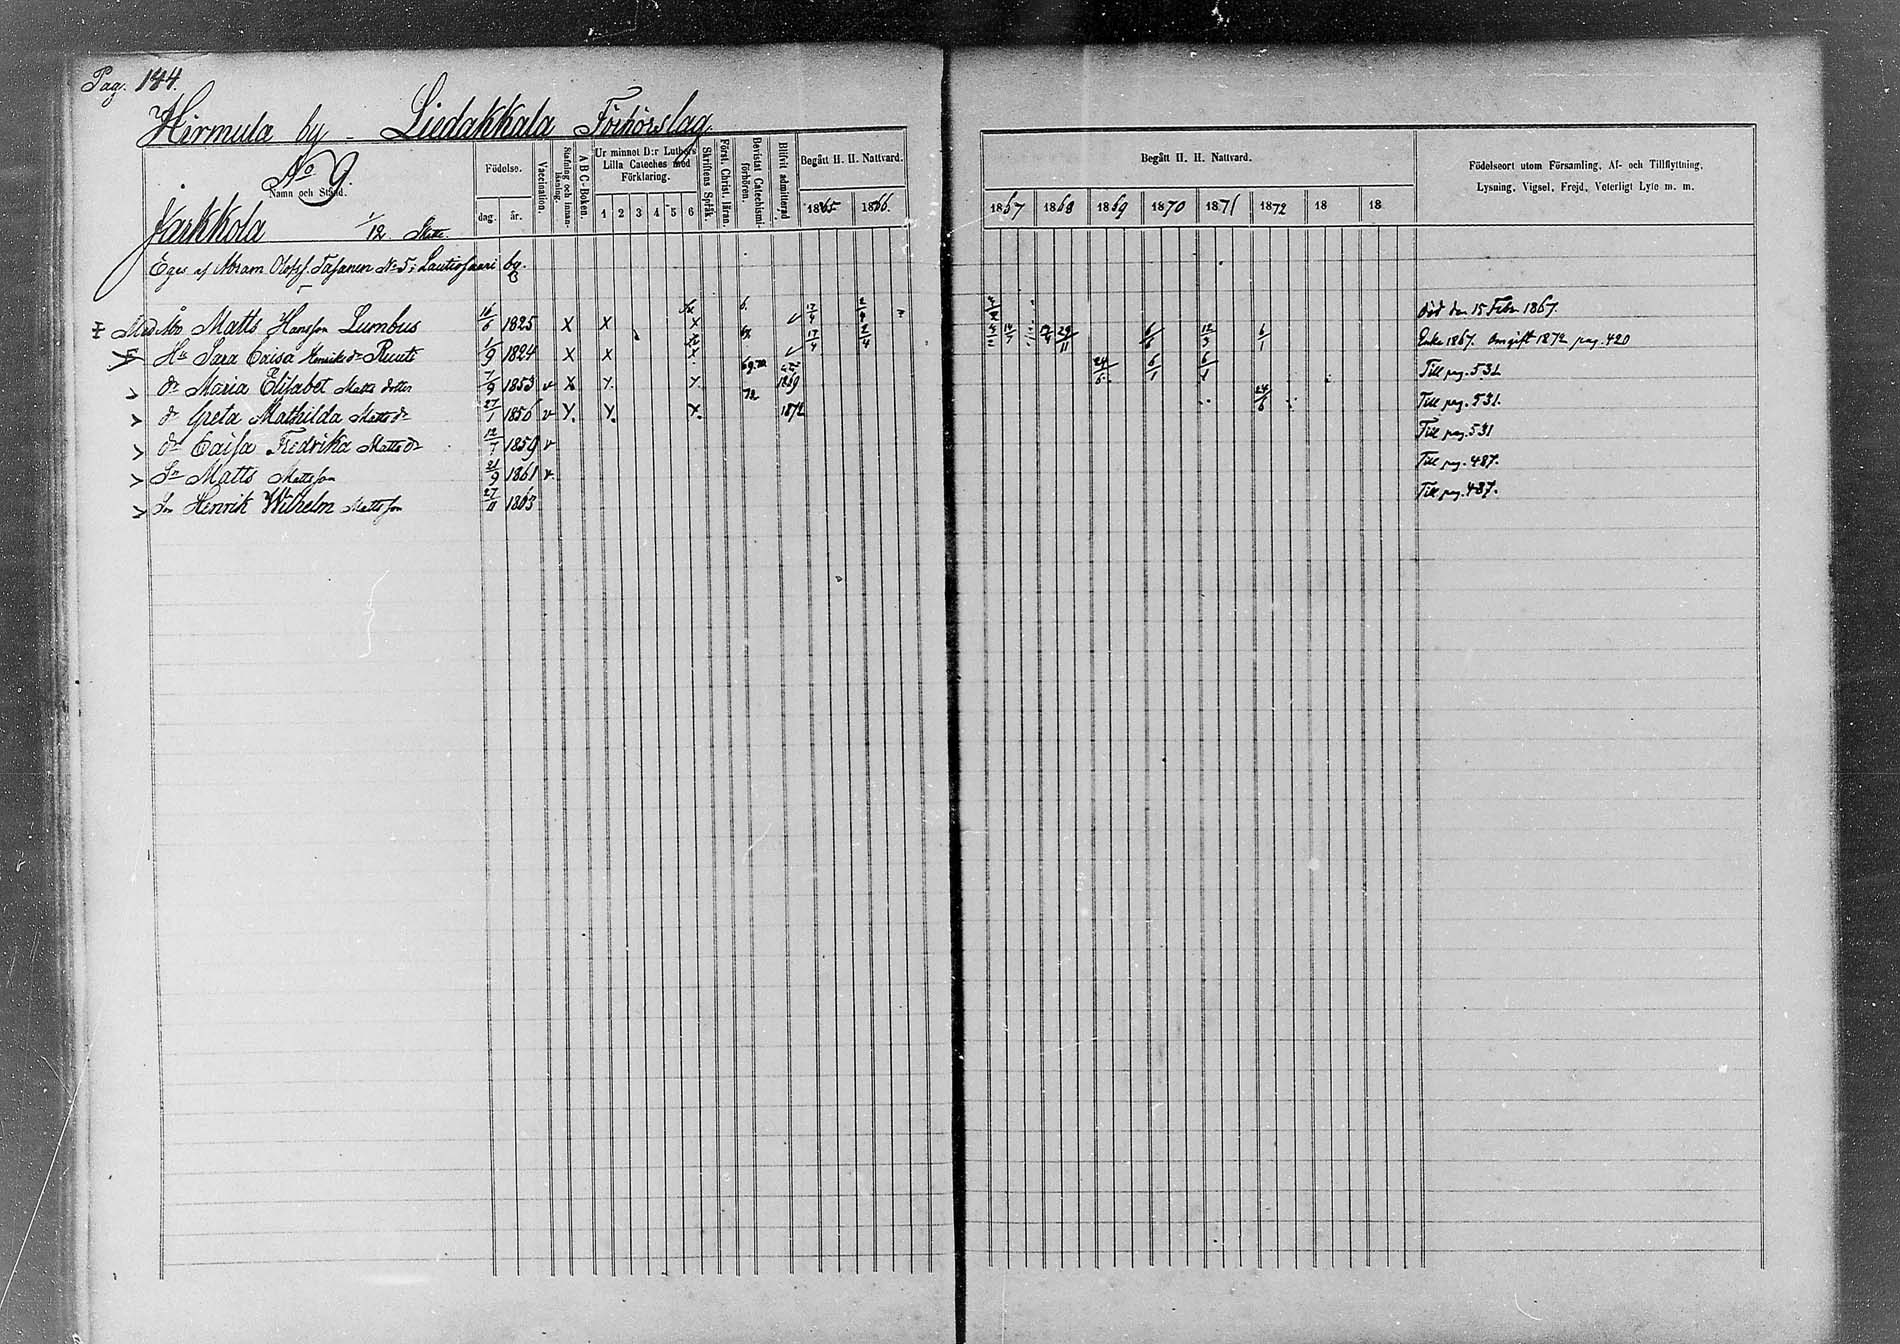 Pag. 144.
Hirmula by - Liedakkala Förhörslag.
No 9.
Namn och Stånd.
Födelse.
dag. år.
Vaccination.
Stafning och innan-läsning.
A B C-Boken.
Ur minnet D:r Luthers Lilla Cateches med Förklaring.
1 2 3 4 5 6
Skriftens Språk.
Först. Christ. läran.
Bevistat Catechismi-förhören.
Blifvit admitterad
Begått H. H. Nattvard.
1865 1866.
Begått H. H. Nattvard.
1867 1868 1869 1870 1871 1872 18 18
Födelseort utom Församling, Af- och Tillflyttning,
Lysning, Vigsel, Frejd, Veterligt Lyte m. m.
Jarkkola 1/12
Eges af Abram Olofsf. No 5 i Lautiosaari by.
Matts Hansson Lumbus 16/6 1825 X X X 17/4 död den 15 Febr 1867.
Hu Sara Caisa Henriksdr Ruuti 1/9 1824 X X X 17/4 2/4 14/7 29/11 6/6 12/3 6/1 Enka 1867. Omgift 1872 pag. 420
dr Maria Elisabet Matts dotter 7/9 1853 v X X X 1869 24/5 6/1 6/1 Till pag. 531
dr Greta Mathilda Mattsdr 27/1 1856 v X X X 72 1872 24/6 Till pag. 531.
dr Caisa Fredrika Mattsdr 12/7 1859 v Till pag. 531
Sn Matts Mattsson 21/9 1861 v Till pag. 487.
Sn Henrik Wilhelm Mattsson 27/11 1863 Till pag. 487.